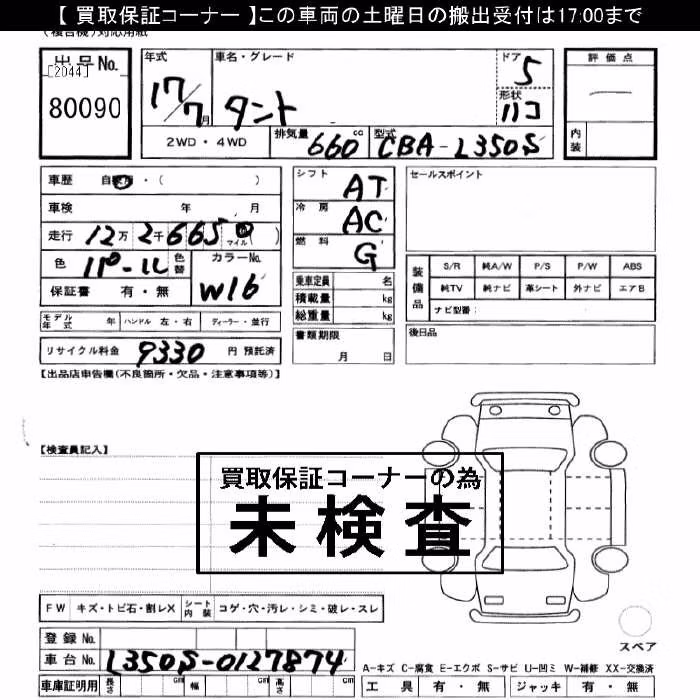 【 買取保証コーナー 】この車両の土曜日の搬出受付は17:00まで
(複合機)対応用紙
出品No. [2044] 80090
年式 17/7月
車名・グレード タント
ドア 5
形状 ハコ
評価点 —
内装
2WD・4WD
排気量 660 cc
型式 CBA-L350S
車歴 自家用・( )
車検 年 月
走行 12万2千6650(マイル)
色 パール 色替
カラーNo. W16
保証書 有・無
シフト AT
冷房 AC
燃料 G
乗車定員 名
積載量 kg
総重量 kg
セールスポイント
装備品
S/R 純A/W P/S P/W ABS
純TV 純ナビ 革シート 外ナビ エアB
ナビ型番:
モデル年式 年 ハンドル 左・右 ディーラー・並行
リサイクル料金 9330 円 預託済
書類期限 月 日
後日品
【出品店申告欄(不良箇所・欠品・注意事項等)】
【検査員記入】
買取保証コーナーの為
未検査
FW キズ・トビ石・割レX シート内装 コゲ・穴・汚レ・シミ・破レ・スレ
スペア
登録No.
車台No. L350S-0127874
A-キズ C-腐食 E-エクボ S-サビ U-凹ミ W-補修 XX-交換済
車庫証明用 長さ cm 幅 cm 高さ cm
工具 有・無 ジャッキ 有・無